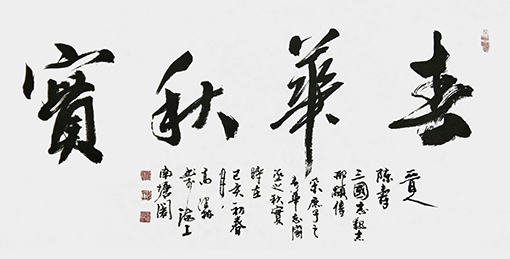 春華秋實
晋人
陳壽
三國志魏志
邢顒傳
采庶子之
春華忘家
丞之秋實
時在
己亥初春
月
海上
南塘閣